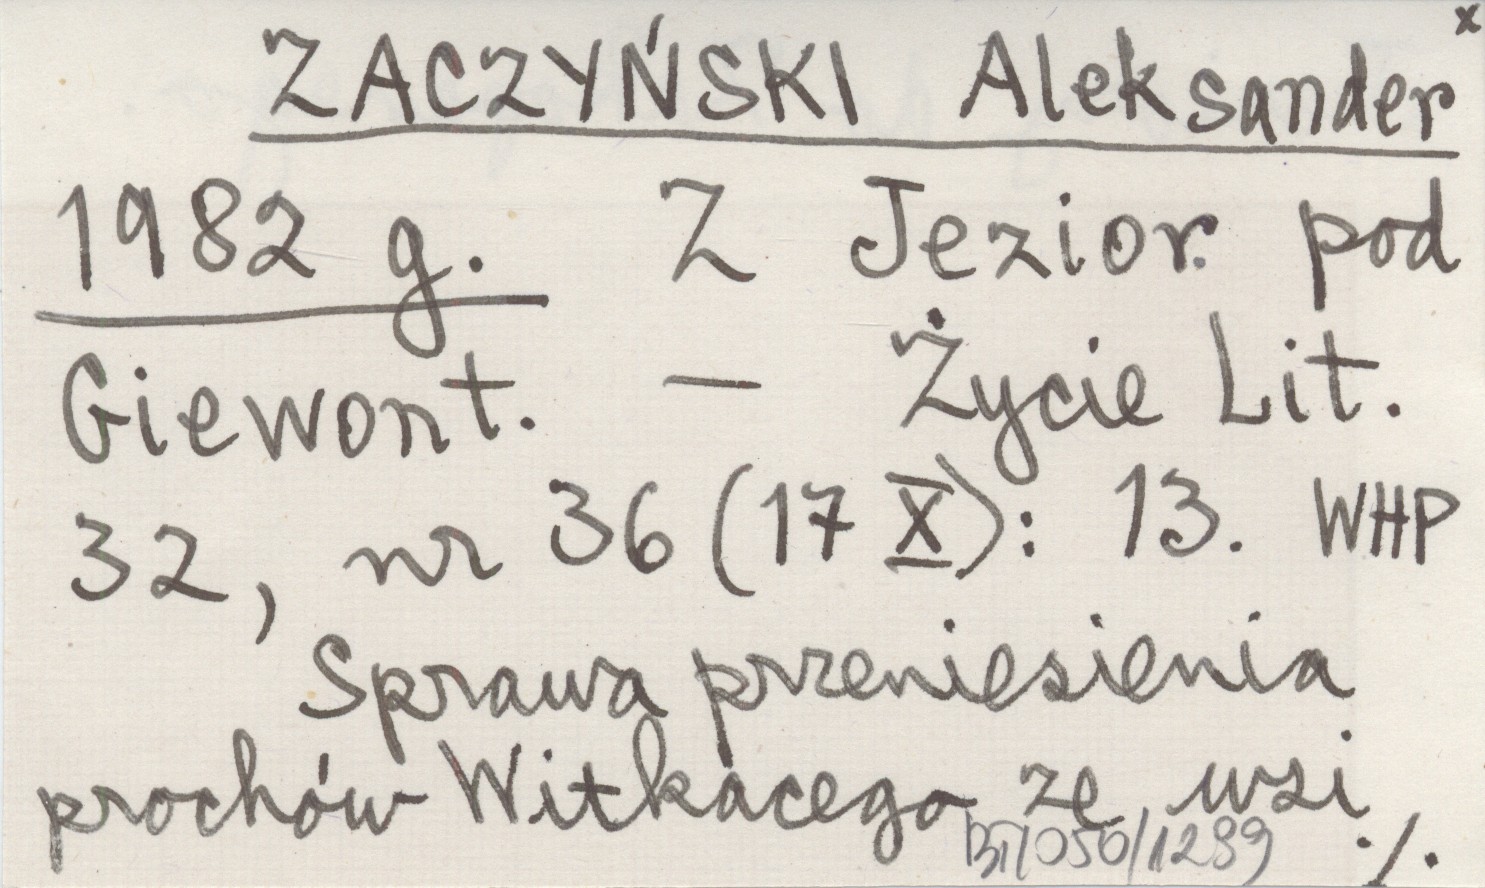 x
ZACZYŃSKI Aleksander
1982 g. Z Jezior. pod
Giewont. — Życie Lit.
32, nr 36 (17 X): 13. WHP
Sprawa przeniesienia
prochów Witkacego ze wsi
BJ/050/1289 ./.